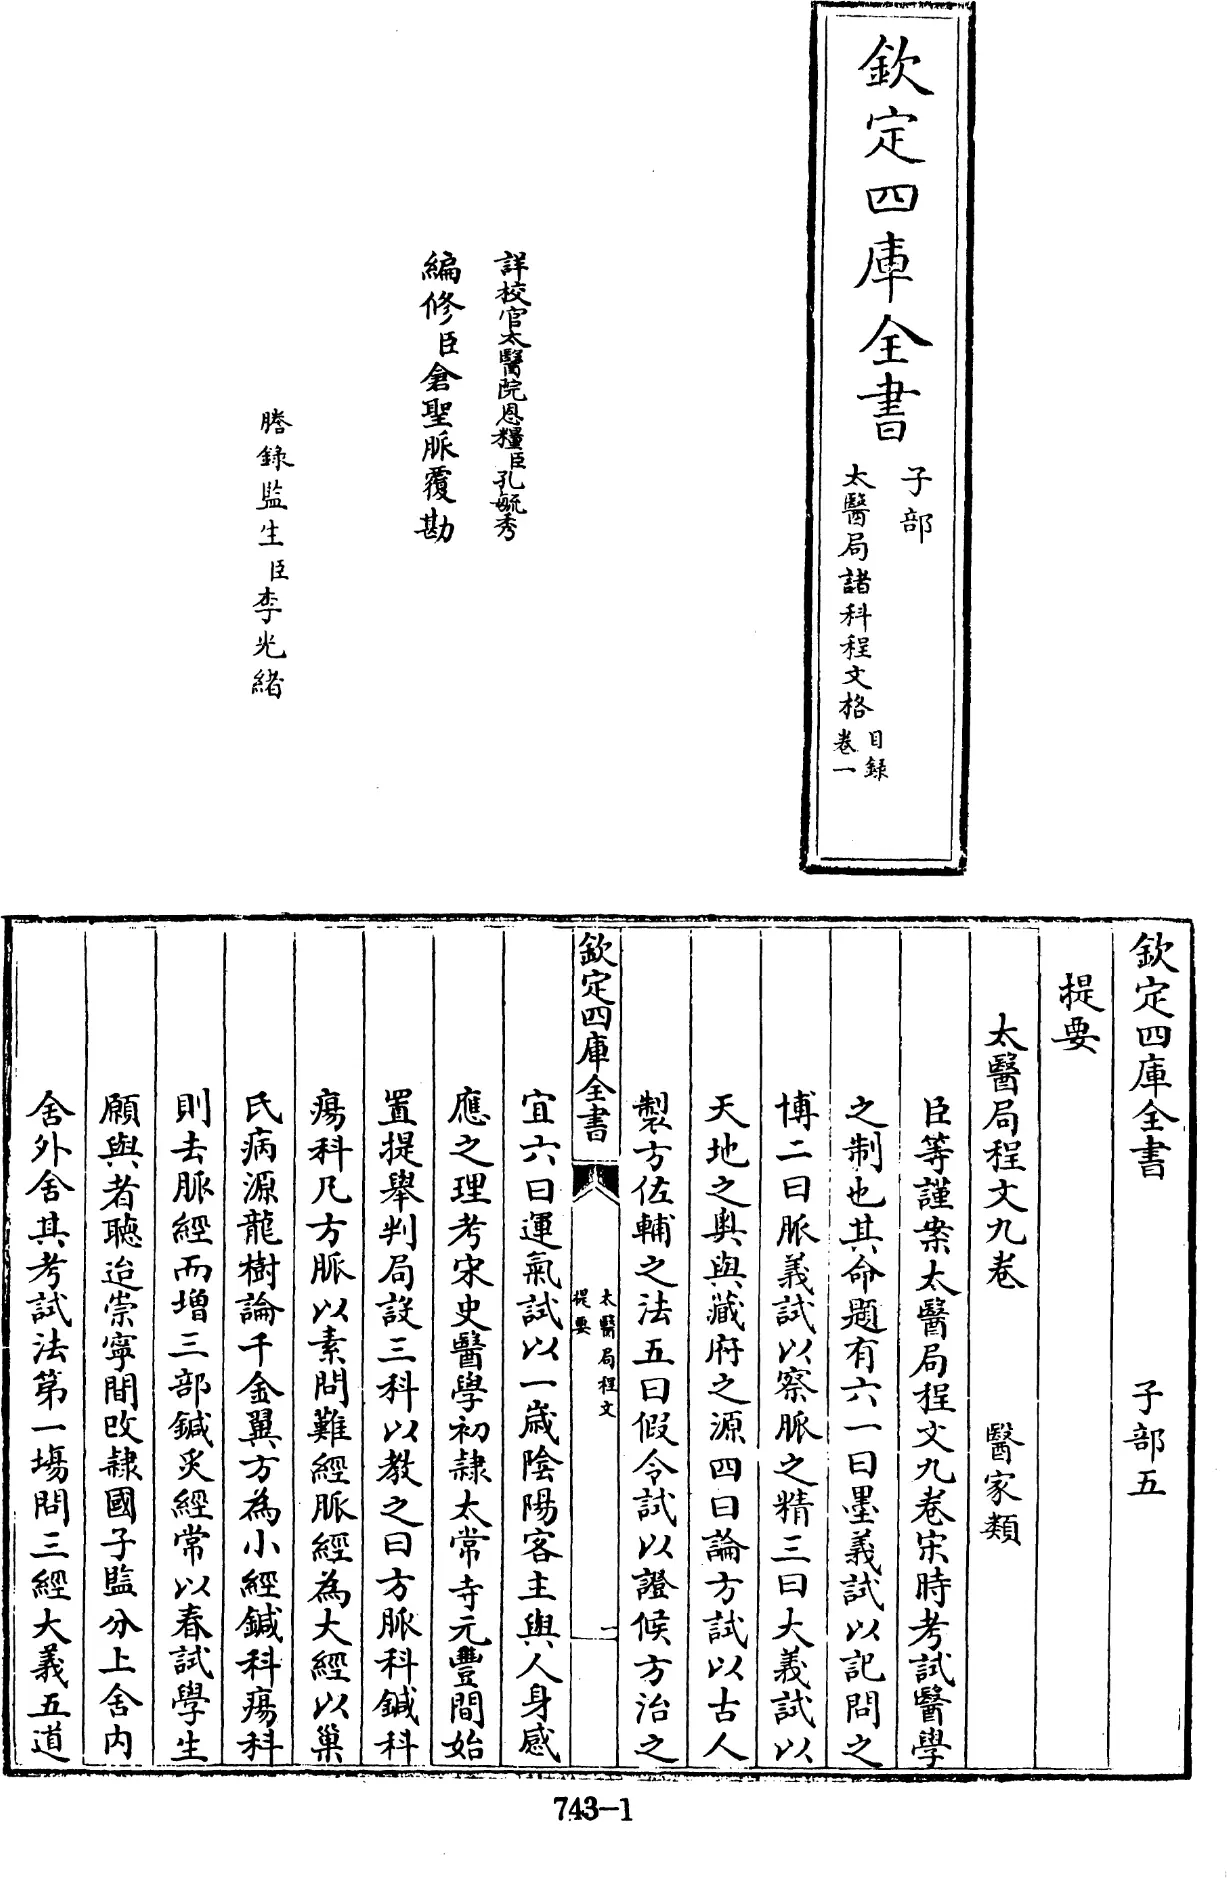 欽定四庫全書
子部
太醫局諸科程文格
目錄
卷一
詳校官太醫院恩糧臣孔毓秀
編修臣倉聖脈覆勘
謄錄監生臣李光緒
欽定四庫全書 子部五
提要
太醫局程文九卷 醫家類
臣等謹案太醫局程文九卷宋時考試醫學
之制也其命題有六一曰墨義試以記問之
博二曰脈義試以察脈之精三曰大義試以
天地之奧與藏府之源四曰論方試以古人
製方佐輔之法五曰假令試以證候方治之
欽定四庫全書
太醫局程文
提要
一
宜六曰運氣試以一歲陰陽客主與人身感
應之理考宋史醫學初隸太常寺元豐間始
置提舉判局設三科以教之曰方脈科鍼科
瘍科凡方脈以素問難經脈經為大經以巢
氏病源龍樹論千金翼方為小經鍼科瘍科
則去脈經而增三部鍼灸經常以春試學生
願與者聽迨崇寧間改隸國子監分上舍內
舍外舍其考試法第一場問三經大義五道
743-1